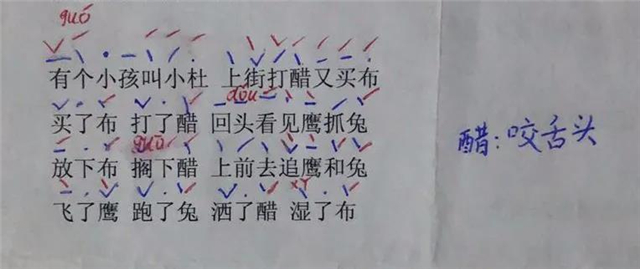 guó
有个小孩叫小杜 上街打醋又买布
买了布 打了醋 回头看见鹰抓兔
放下布 搁下醋 上前去追鹰和兔
飞了鹰 跑了兔 洒了醋 湿了布
醋:咬舌头